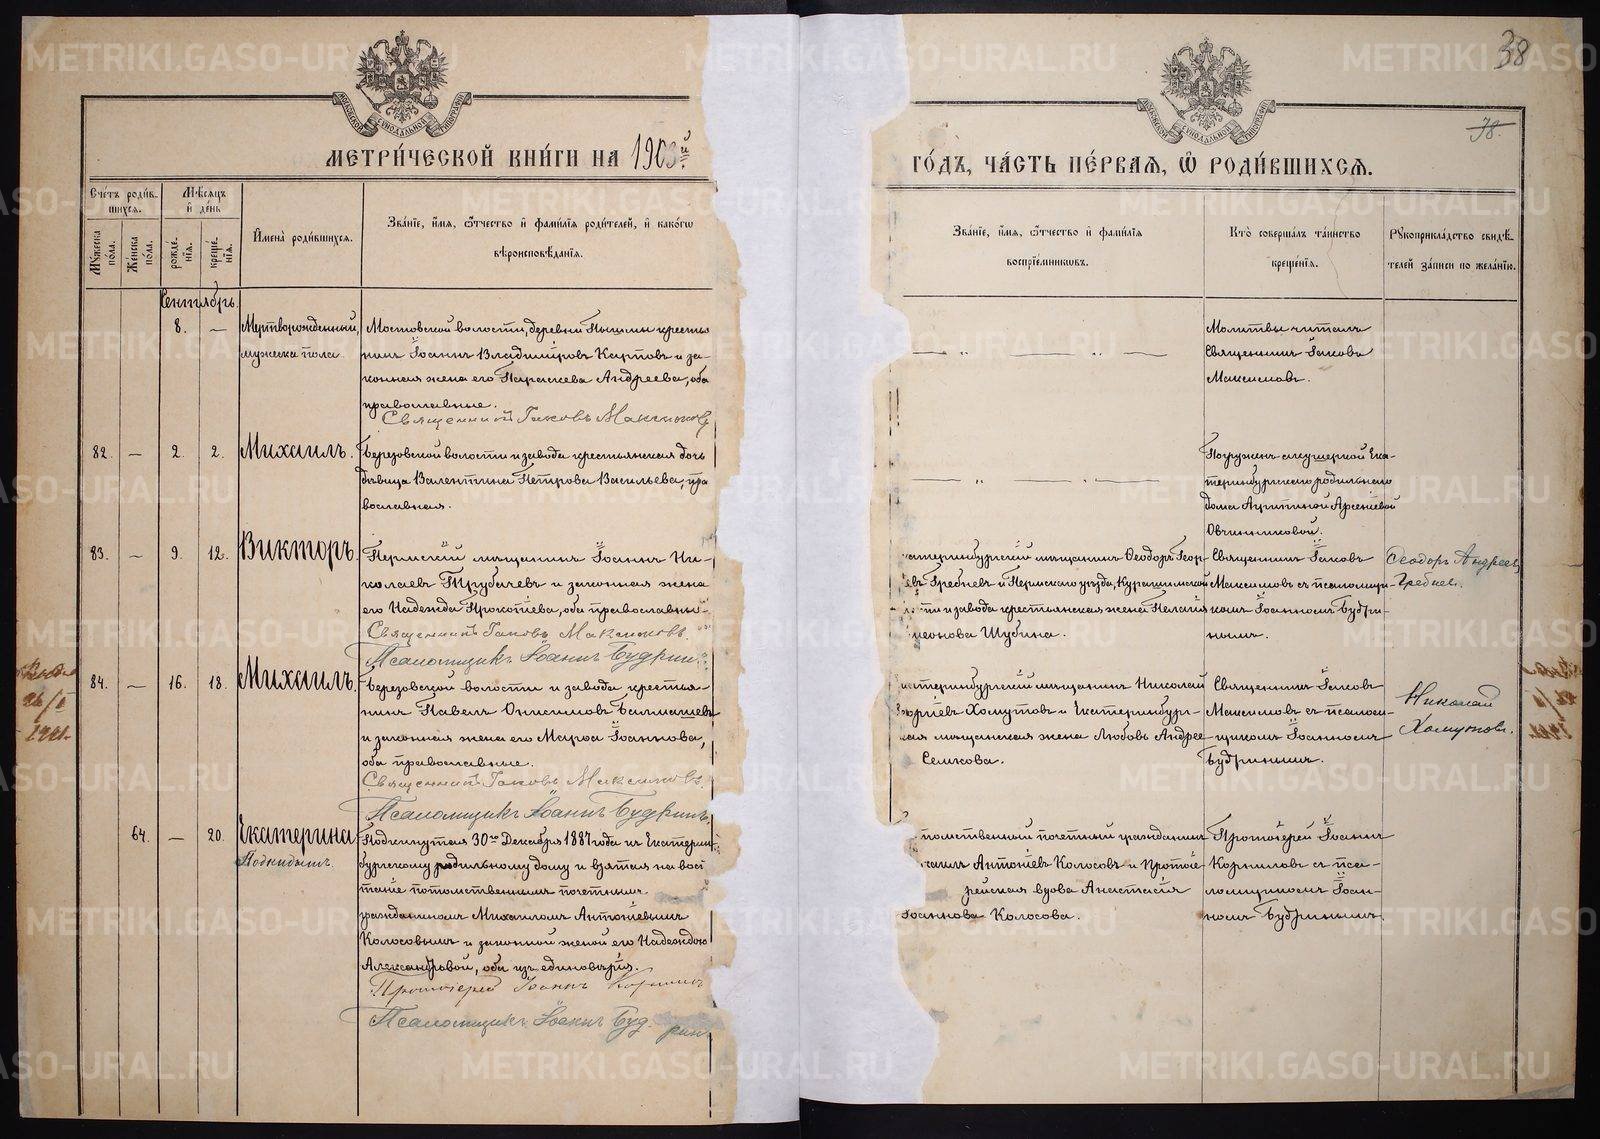 38
38.
МОСКОВСКОЙ СѴНОДАЛЬНОЙ ТИПОГРАФІИ
МОСКОВСКОЙ СѴНОДАЛЬНОЙ ТИПОГРАФІИ
МЕТРИ́ЧЕСКОЙ КНИ́ГИ НА 1903й
ГО́ДЪ, ЧА́СТЬ ПЕ́РВАЯ, Ѽ РОДИ́ВШИХСЯ.
Сче́тъ роди́в-
шихся.
Мꙋ́жеска по́ла.
Же́нска по́ла.
Мѣ́сяцъ и де́нь
рожде́нїя.
креще́нїя.
И́мена̀ роди́вшихся.
Зва́нїе, и́мя, ѻ́тчество и фами́лїя роди́телей, и како́гѡ
вѣроисповѣ́данїя.
Зва́нїе, и́мя, ѻ́тчество и фами́лїя
воспрїе́мникѡвъ.
Кто̀ соверша́лъ та́инство
креще́нїя.
Рꙋкоприкла́дство свидѣ́-
телей за́писи по жела́нїю.
Сентябрь.
8. —
Мертворожденный,
мужеска пола
Мостовской волости, деревни Пышмы кресть-
нинъ Іоаннъ Владиміровъ Карповъ и за-
конная жена его Параскева Андреева, оба
православные.
Священникъ Іаковъ Максимовъ
Молитвы читалъ
Священникъ Іаковъ
Максимовъ.
82. — 2. 2.
Михаилъ.
Березовской волости и завода крестьянская дочь
дѣвица Валентина Петрова Васильева, пра
вославная.
Погруженъ акушеркой Ека-
теринбургскаго родильнаго
дома Арсеніевой
Овчинниковой.
83. — 9. 12.
Викторъ.
Пермскій мѣщанинъ Іоаннъ Ни-
колаевъ Трубачевъ и законная жена
его Надежда Прокопіева, оба православны-
Священникъ Іаковъ Максимовъ.
Псаломщикъ Іоаннъ Будрин
атеринбургскій мѣщанинъ Ѳеодоръ Геор-
евъ Гребневъ и Пермскаго уѣзда, Курашимской
ти и завода крестьянская жена Пелагія
меонова Шубина.
Священникъ Іаковъ
Максимовъ съ псаломщи-
комъ Іоанномъ Будри-
нымъ.
Ѳеодоръ Андреев
Гребнев.
84. — 16. 18.
Михаилъ.
Березовской волости и завода крестья-
нинъ Павелъ Онисимовъ Балташевъ
и законная жена его Марѳа Іоаннова,
оба православные.
Священникъ Іаковъ Максимовъ.
Псаломщикъ Іоаннъ Будринъ
атеринбургскій мѣщанинъ Николай
оргіевъ Хомутовъ и Екатеринбург-
кая мѣщанская жена Любовь Андрее
Семкова.
Священникъ Іаковъ
Максимовъ съ псалом-
щикомъ Іоанномъ
Будринымъ.
Николай
Хомутовъ.
26/I
1941.
64. — 20.
Екатерина
Подкидышъ.
Подкинутая 30го Декабря 1887 года къ Екатерин
бургскому родильному дому и взятая на воспи
таніе потомственнымъ почетнымъ
гражданиномъ Михаиломъ Антоніевымъ
Колосовымъ и законной женой его Надеждою
Александровой, оба изъ единовѣрія.
Протоіерей Іоаннъ Корнилов
Псаломщикъ Іоаннъ Буд-
рин
потомственный почетный гражданинъ
хаилъ Антоніевъ Колосовъ и протоіе-
рейская вдова Анастасія
Іоаннова Колосова.
Протоіерей Іоаннъ
Корниловъ съ пса-
ломщикомъ Іоан-
номъ Будринымъ.
METRIKI.GASO-URAL.RU